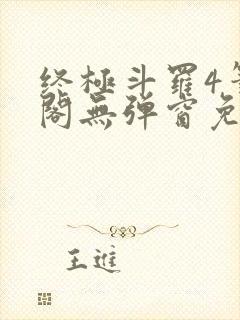 终極斗羅4
閣無弹窗免
王進